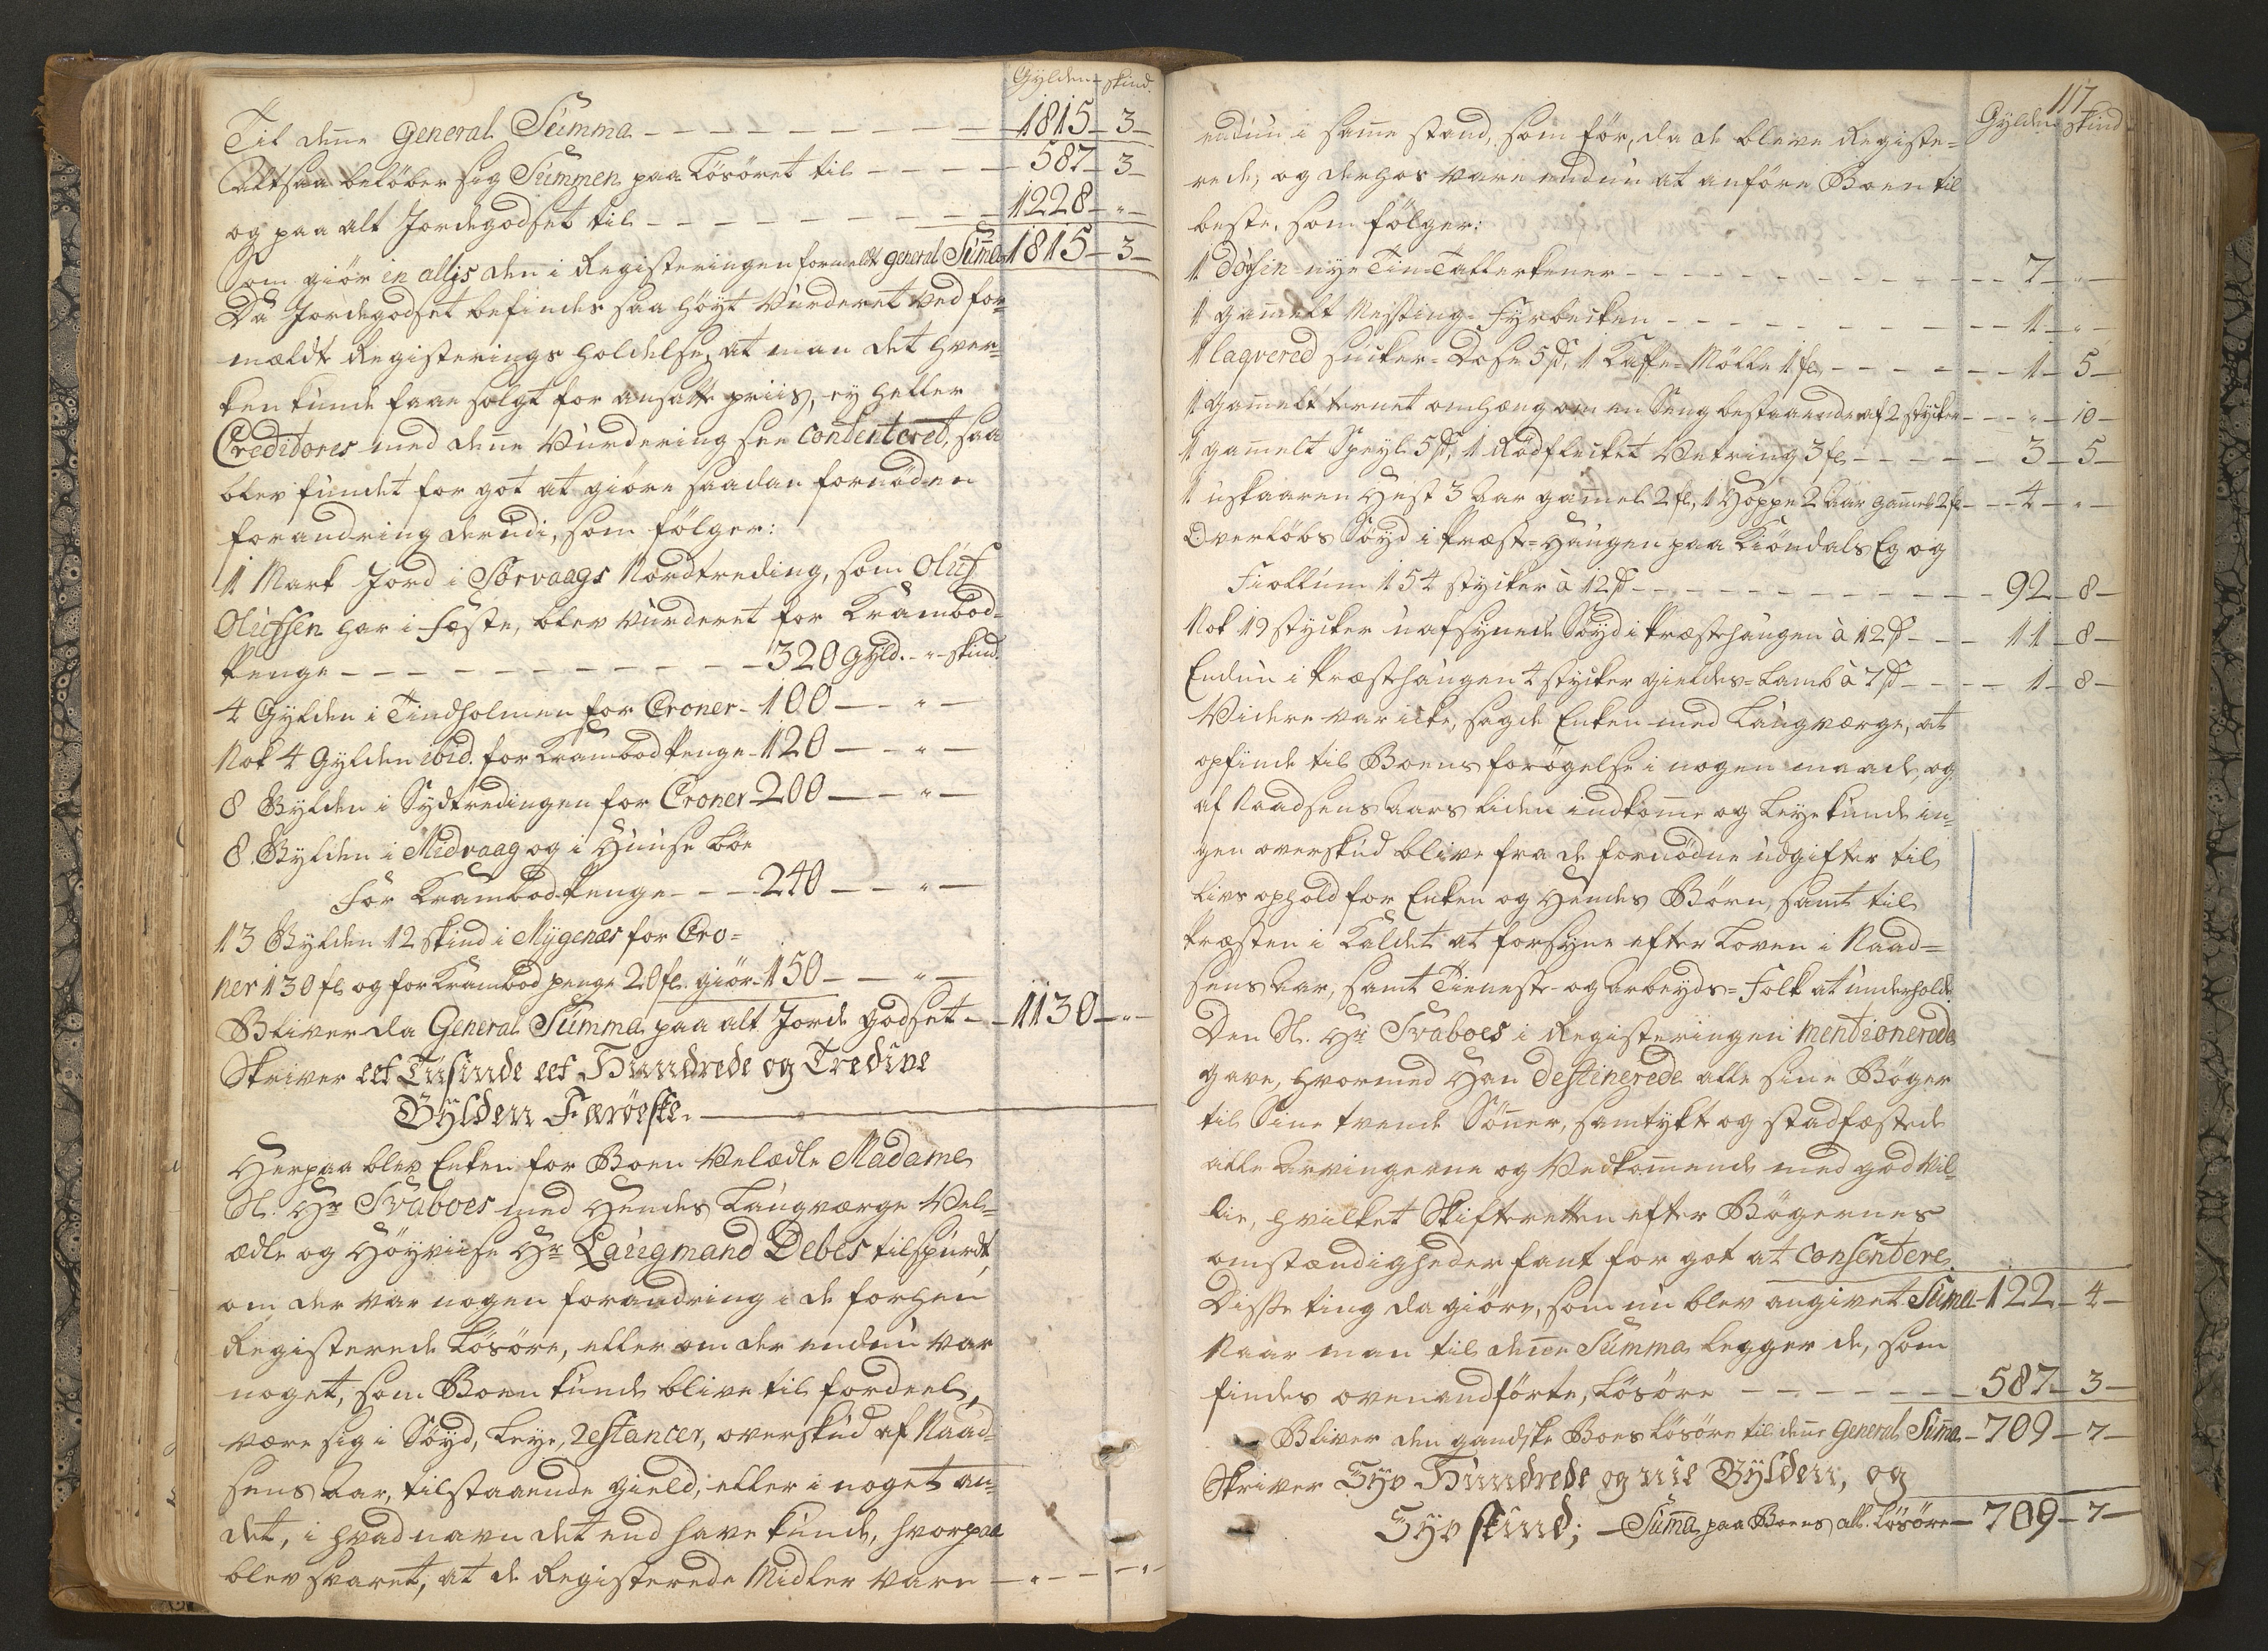 Gylden - skind.
Til denne General Summa - - - 1815 - 3 -
Altsaa belöber sig Summen paa Lösöret til - - - 587 - 3 -
og paa alt Jordegodset til - - - 1228 - " -
Som giör in allis den i Registeringen formeldt general Summa 1815 - 3 -
Da Jordegodset befindes saa höyt Vurderet ved for-
mældte Registerings holdelse, at man det hver-
ken kunde faae solgt for ansatte priis, ey heller
Creditores med denne Vurdering see contenteret, saa
blev fundet for got at giöre saadan fornöden
forandring derudi, som fölger:
1 Mark Jord i Sörvaags Nordtreding, som Oluf
Olufsen har i Fæste, blev vurderet for Krambod-
Penge - - - 320 Gyld. - " - skind.
4 Gylden i Tindholmen for Croner - 100 - " -
Nok 4 Gylden ibid. for Krambod Penge - 120 - " -
8 Gylden i Sydtredingen for Croner - 200 - " -
8 Gylden i Midvaag og i Huuse böe
For Krambod Penge - - - 240 - " -
13 Gylden 12 skind i Mygenæs for Cro=
ner 130 fl og for Krambod penge 20 fl. giör - 150 - " -
Bliver da General Summa paa alt Jorde godset - 1130 - " -
Skriver eet Tusinde eet Hundrede og Tredive
Gylden Færöeske.
Herpaa blev Enken for Boen Velædle Madame
Sl. Hr Svaboes med Hendes Laugværge Vel-
ædle og Höyviise Hr Laugmand Debes tilspurdt,
om der var nogen forandring i de forhen
Registerede Lösöre, eller om der endnu var
noget, som Boen kunde blive til fordeel,
være sig i Söyd, Leye, Restancer, overskud af Naad-
sens Aar, tilstaaende gield, eller i noget an-
det, i hvad navn det end have kunde, hvorpaa
blev svaret, at de Registerede Midler vare - " - - " -
117
Gylden skind
endnu i samme stand, som för, da de bleve Registe=
rede, og derhos vare endnu at anföre Boen til
beste, som fölger:
1 dösin nye Tin-Tallerkener - - - 7 - " -
1 gammelt Messing Fyrbecken - - - 1 - " -
1 laqvered sucker-Dose 5 s, 1 Kaffe-Mölle 1 fl - - - 1 - 5 -
1 gammelt ternet omhæng om en Seng bestaaende af 2 stycker - - " - 10 -
1 gammelt Speyl 5 s, 1 Rödflecket Vetring 3 fl - - - 3 - 5 -
1 uskaaren Hest 3 Aar gammel 2 fl, 1 Hoppe 2 Aar gammel 2 fl - - 4 - " -
Overlöbs Söyd i Præste-Haugen paa Kiöndals Eg og
Fiollum 154 stycker à 12 s - - - 92 - 8 -
Nok 19 stycker uafsynede Söyd i Præstehaugen à 12 s - - - 11 - 8 -
Endnu i Præstehaugen 4 stycker gieldes-Lamb à 7 s - - - 1 - 8 -
Videre var icke, sagde Enken med Laugværge, at
opfinde til Boens forögelse i nogen maade, og
af Naadsens Aars liden indkomme og Leye kunde in-
gen overskud blive fra de fornödne udgifter til
Livs ophold for Enken og Hendes Börn, samt til
Præsten i Kaldet at forsyne efter Loven i Naad=
sens Aar, samt Tieneste- og Arbeyds-Folk at underholde.
Den Sl. Hr Svaboes i Registeringen mentionerede
gave, hvormed Han destinerede alle sine Böger
til Sine tvende Sönner, samtykte og stadfæstede
alle Arvingerne og Vedkommende med god Vil-
lie, hvilket Skifteretten efter Bögernes
omstændigheder fant for got at consentere.
Disse ting da giöre, som nu blev angivet Summa - 122 - 4 -
Naar man til denne Summa legger de, som
findes ovenandförte, Lösöre - - - 587 - 3 -
Bliver den gandske Boes Lösöre til denne General Summa - 709 - 7 -
Skriver Syv Hundrede og nie Gylden, og
Syv skind; - Summa paa Boens all. Lösöre - 709 - 7 -